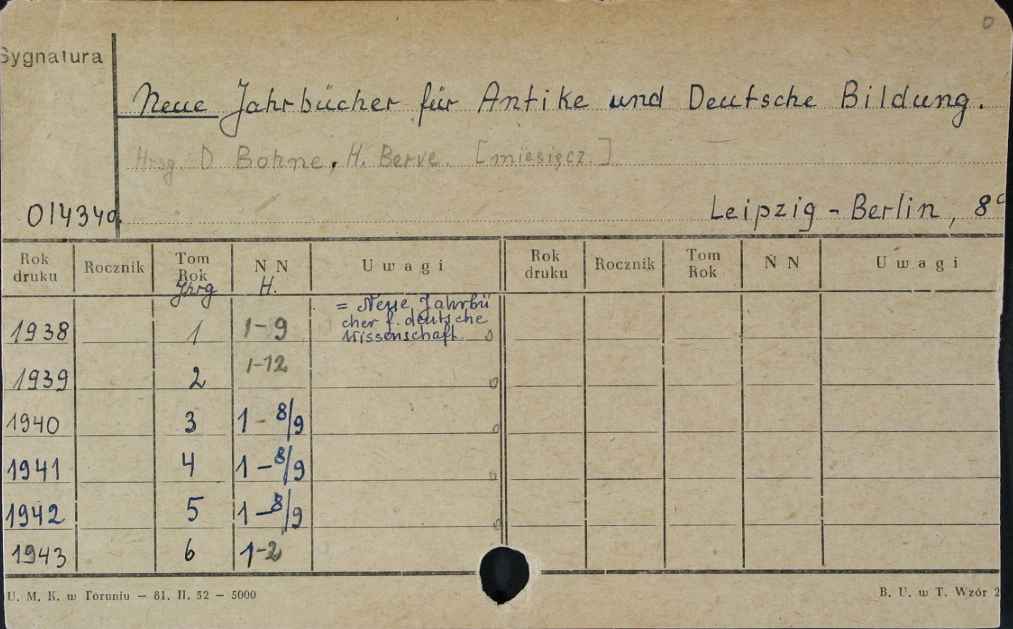 0
Sygnatura
Neue Jahrbücher für Antike und Deutsche Bildung.
Hrsg. D Bohne, H. Berve. [miesięcz.]
014340. Leipzig - Berlin, 8°
Rok druku Rocznik Tom Rok Jhrg N N H. Uwagi Rok druku Rocznik Tom Rok N N Uwagi
1938 1 1-9 = Neue Jahrbü
cher f. deutsche
Wissenschaft. 0
1939 2 1-12 0
1940 3 1-8/9 0
1941 4 1-8/9 0
1942 5 1-8/9 0
1943 6 1-2
U. M. K. w Toruniu — 81. II. 52 — 5000 B. U. w T. Wzór 2